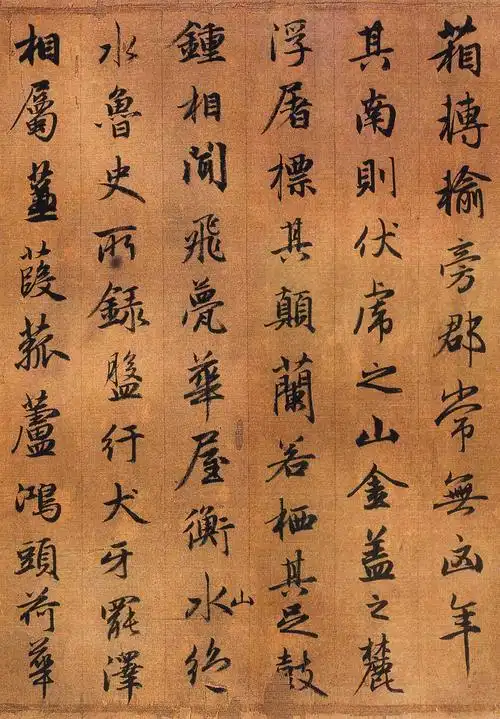 箱轉輸旁郡常無凶年
其南則伏虎之山金盖之麓
浮屠標其顛蘭若栖其足鼓
鍾相聞飛甍華屋衡水山絶
水魯史所錄盤紆犬牙罷澤
相屬蒹葭菰蘆鴻頭荷華